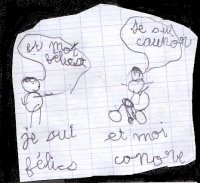 et moi
félics
je sui
je sui
félics
et moi
conore